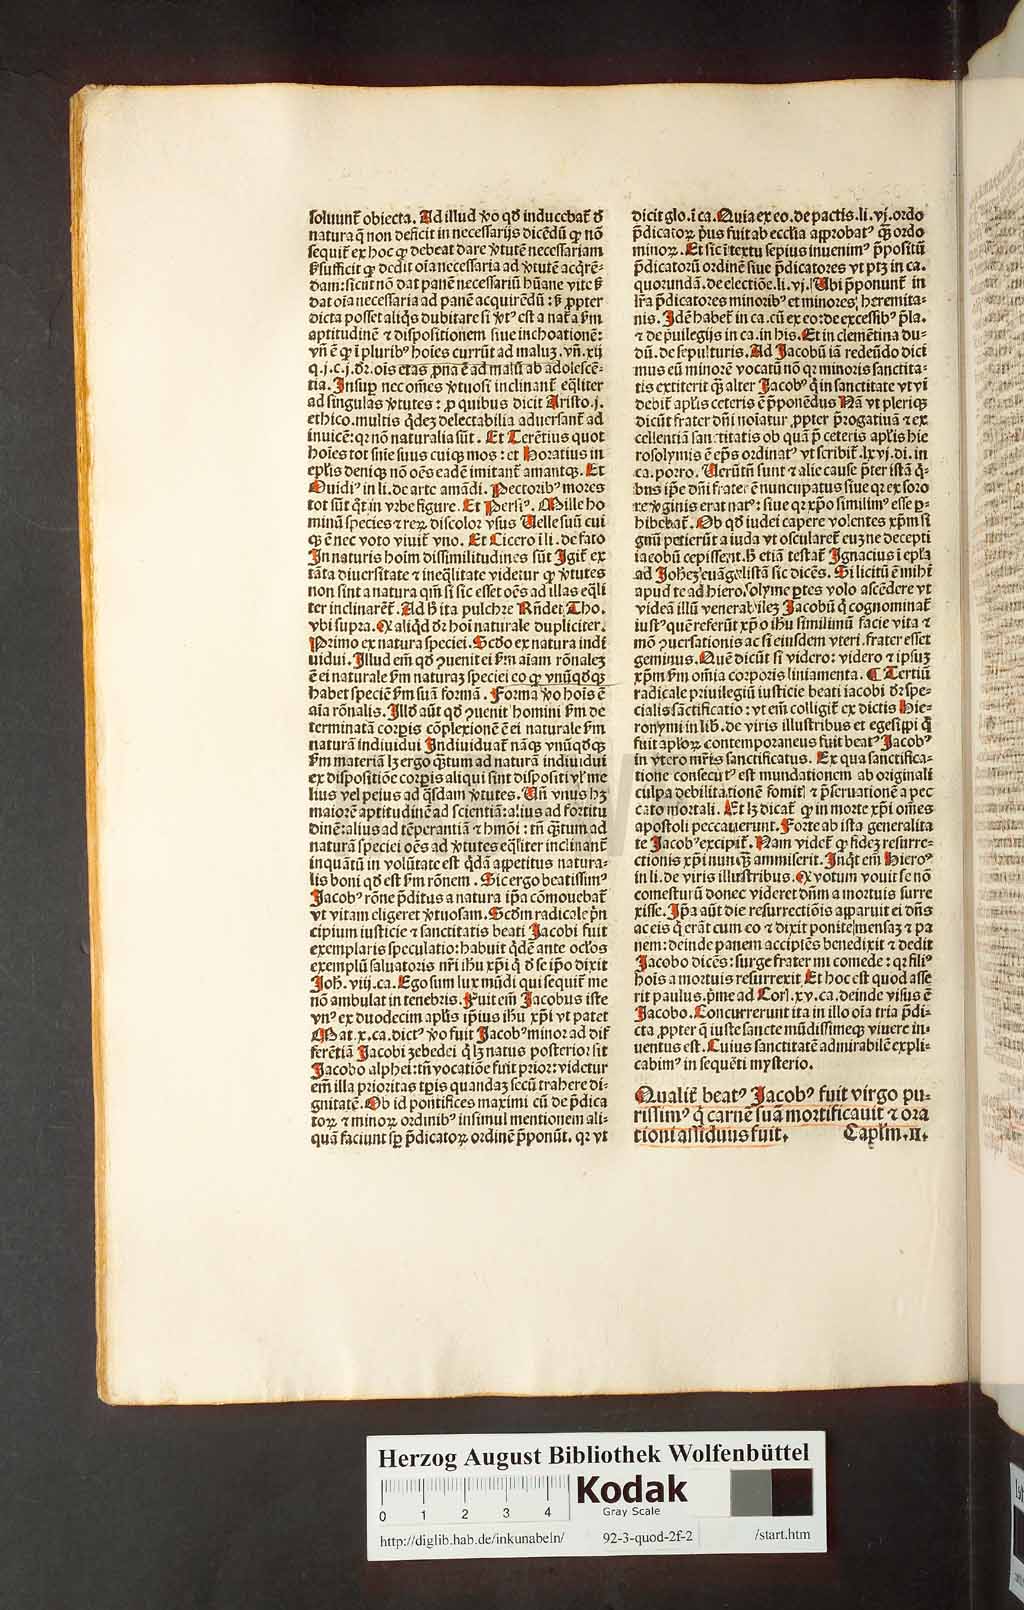 soluunt᷑ obiecta. Ad illud v̓o qd̓ inducebat᷑ d̓
natura q̄ non deficit in necessarijs dicēdū ꝙ nō
sequit᷑ ex hoc ꝙ debeat dare v̓tutē necessariam
sꝫ sufficit ꝙ dedit oīa necessaria ad v̓tutē acq̄rē-
dam: sicut nō dat panē necessariū hūane vite sꝫ
dat oīa necessaria ad panē acquirēdū: sꝫ ꝓpter
dicta posset aliq̄s dubitare si v̓tꝰ est a nat᷑a ẜm
aptitudinē ⁊ dispositionem siue inchoationē:
vn̄ ē ꝙ ī pluribꝰ hoīes currūt ad maluꝫ. vn̄. xij
q. j. c. j. dr̄. oīs etas ꝓna ē ad malū ab adolescē-
tia. Insuꝑ nec om̄es v̓tuosi inclinant᷑ eq̄liter
ad singulas v̓tutes: ꝓ quibus dicit Aristo. j.
ethico. multis q̄deꝫ delectabilia aduersant᷑ ad
inuicē: qꝛ nō naturalia sūt. Et Terētius quot
hoīes tot sn̄ie suus cuiqꝫ mos: et Horatius in
ep̄lis deniqꝫ nō oēs eadē imitant᷑ amantqꝫ. Et
Ouidiꝰ in li. de arte amādi. Pectoribꝰ mores
tot sūt q̄t in vrbe figure. Et Persiꝰ. Mille ho
minū species ⁊ reꝝ discolor vsus Uelle suū cui
qꝫ ē nec voto viuit᷑ vno. Et Cicero ī li. de fato
In naturis hoīm dissimilitudines sūt Igit᷑ ex
tāta diuersitate ⁊ ineq̄litate videtur ꝙ v̓tutes
non sint a natura qm̄ si sic esset oēs ad illas eq̄li
ter inclinaret᷑. Ad h̓ ita pulchre Rn̄det Tho.
vbi supra. Ꝙ aliqd̓ dr̄ hoī naturale dupliciter.
Primo ex natura speciei. Scd̓o ex natura indi
uidui. Illud em̄ qd̓ ꝯuenit ei ẜm aīam rōnaleꝫ
ē ei naturale ẜm naturaꝫ speciei eo ꝙ vnūqd̓qꝫ
habet speciē ẜm suā formā. Forma v̓o hoīs ē
aīa rōnalis. Illd̓ aūt qd̓ ꝯuenit homini ẜm de
terminatā corꝑis cōplexionē ē ei naturale ẜm
naturā indiuidui Indiuiduat᷑ nāqꝫ vnūqd̓qꝫ
ẜm materiā lꝫ ergo q̄tum ad naturā indiuidui
ex dispositiōe corꝑis aliqui sint dispositi vl̓ me
lius vel peius ad q̄sdam v̓tutes. Un̄ vnus hꝫ
maiorē aptitudinē ad scientiā: alius ad fortitu
dinē: alius ad tēperantiā ⁊ hmōi: tn̄ q̄tum ad
naturā speciei oēs ad v̓tutes eq̄liter inclinant᷑
inquātū in volūtate est q̄dā appetitus natura-
lis boni qd̓ est ẜm rōnem. Sic ergo beatissimꝰ
Jacobꝰ rōne p̄ditus a natura ip̄a cōmouebat᷑
vt vitam eligeret v̓tuosam. Scd̓m radicale p̄n
cipium iusticie ⁊ sanctitatis beati Jacobi fuit
exemplaris speculatio: habuit q̄dē ante oc̓los
exemplū saluatoris nr̄i ih̓u xp̄i q̄ d̓ se ip̄o dixit
Joh̓. viij. ca. Ego sum lux mūdi qui sequit᷑ me
nō ambulat in tenebris. Fuit em̄ Jacobus iste
vnꝰ ex duodecim apl̓is ip̄ius ih̓u xp̄i vt patet
Mat. x. ca. dictꝰ v̓o fuit Jacobꝰ minor ad dif
ferētiā Jacobi ȝebedei q̄ lꝫ natus posterior sit
Jacobo alphei: tn̄ vocatiōe fuit prior: videtur
em̄ illa prioritas tꝑis quandaꝫ secū trahere di-
gnitatē. Ob id pontifices maximi cū de p̄dica
toꝝ ⁊ minoꝝ ordinibꝰ insimul mentionem ali-
quā faciunt sꝑ p̄dicatoꝝ ordinē p̄ponūt. qꝛ vt
dicit glo. ī ca. Quia ex eo. de pactis. li. vj. ordo
p̄dicatoꝝ p̓us fuit ab eccl̓ia approbatꝰ q̄ꝫ ordo
minoꝝ. Et sic ī textu sepius inuenimꝰ p̄positū
p̄dicatorū ordinē siue p̄dicatores vt ptꝫ in ca.
quorundā. de electiōe. li. vj. Ubi p̄ponunt᷑ in
lr̄a p̄dicatores minoribꝰ et minores heremita-
nis. Idē habet᷑ in ca. cū ex eo: de excessibꝰ p̄la.
⁊ de p̓uilegijs in ca. in his. Et in clemētina du-
dū. de sepulturis. Ad Jacobū iā redeūdo dici
mus eū minorē vocatū nō qꝛ minoris sanctita-
tis extiterit q̄ꝫ alter Jacobꝰ q̄ in sanctitate vt vi
debit᷑ apl̓is ceteris ē p̄ponēdus Nā vt pleriqꝫ
dicūt frater dn̄i noīatur ꝓpter p̄rogatiuā ⁊ ex
cellentiā sanctitatis ob quā p̄ ceteris apl̓is hie
rosolymis ē ep̄s ordinatꝰ vt scribit᷑. lxvj. di. in
ca. porro. Uerūtn̄ sunt ⁊ alie cause p̄ter istā q̄-
bus ip̄e dn̄i frater ē nuncupatus siue qꝛ ex soro
re v̓ginis erat natꝰ: siue qꝛ xp̄o similimꝰ esse ꝑ-
hibebat᷑. Ob qd̓ iudei capere volentes xp̄m si
gnū petierūt a iuda vt oscularet᷑ euꝫ ne decepti
iacobū cepissent. H̓ etiā testat᷑ Ignacius ī epl̓a
ad Joh̓eꝫ euāgelistā sic dicēs. Si licitū ē mihi
apud te ad hierosolyme ꝑtes volo ascēdere vt
videā illū venerabileꝫ Jacobū q̄ cognominat᷑
iustꝰ quē referūt xp̄o ih̓u similimū facie vita ⁊
mō ꝯuersationis ac si eiusdem vteri. frater esset
geminus. Quē dicūt si videro: videro ⁊ ipsuꝫ
xp̄m ẜm om̄ia corporis liniamenta. ¶ Tertiū
radicale priuilegiū iusticie beati iacobi dr̄ spe-
cialis sāctificatio: vt em̄ colligit᷑ ex dictis Hie-
ronymi in lib̓. de viris illustribus et egesippi q̄
fuit apl̓oꝝ contemporaneus fuit beatꝰ Jacobꝰ
in vtero mr̄is sanctificatus. Ex qua sanctifica-
tione consecutꝰ est mundationem ab originali
culpa debilitationē fomitꝭ ⁊ p̄seruationē a pec
cato mortali. Et lꝫ dicat᷑ ꝙ in morte xp̄i om̄es
apostoli peccauerunt. Forte ab ista generalita
te Jacobꝰ excipit᷑. Nam videt᷑ ꝙ fideꝫ resurre-
ctionis xp̄i nunq̄ꝫ ammiserit. Inq̄t em̄ Hieroꝰ
in li. de viris illustribus. Ꝙ votum vouit se nō
comesturū donec videret dn̄m a mortuis surre
xisse. Ip̄a aūt die resurrectiōis apparuit ei dn̄s
ac eis q̄ erāt cum eo ⁊ dixit ponite mensaꝫ ⁊ pa
nem: deinde panem accipiēs benedixit ⁊ dedit
Jacobo dicēs: surge frater mi comede: qꝛ filiꝰ
hoīs a mortuis resurrexit Et hoc est quod asse
rit paulus. p̓me ad Corī. xv. ca. deinde visus ē
Jacobo. Concurrerunt ita in illo oīa tria p̄di-
cta ꝓpter q̄ iuste sancte mūdissimeqꝫ viuere in-
uentus est. Cuius sanctitatē admirabilē expli-
cabimꝰ in sequēti mysterio.
Qualit᷑ beatꝰ Jacobꝰ fuit virgo pu-
rissimꝰ q̄ carnē suā mortificauit ⁊ ora
tioni assiduus fuit. Capl̓m. II.
Herzog August Bibliothek Wolfenbüttel
0 1 2 3 4
Kodak
Gray Scale
http://diglib.hab.de/inkunabeln/ 92-3-quod-2f-2 /start.htm